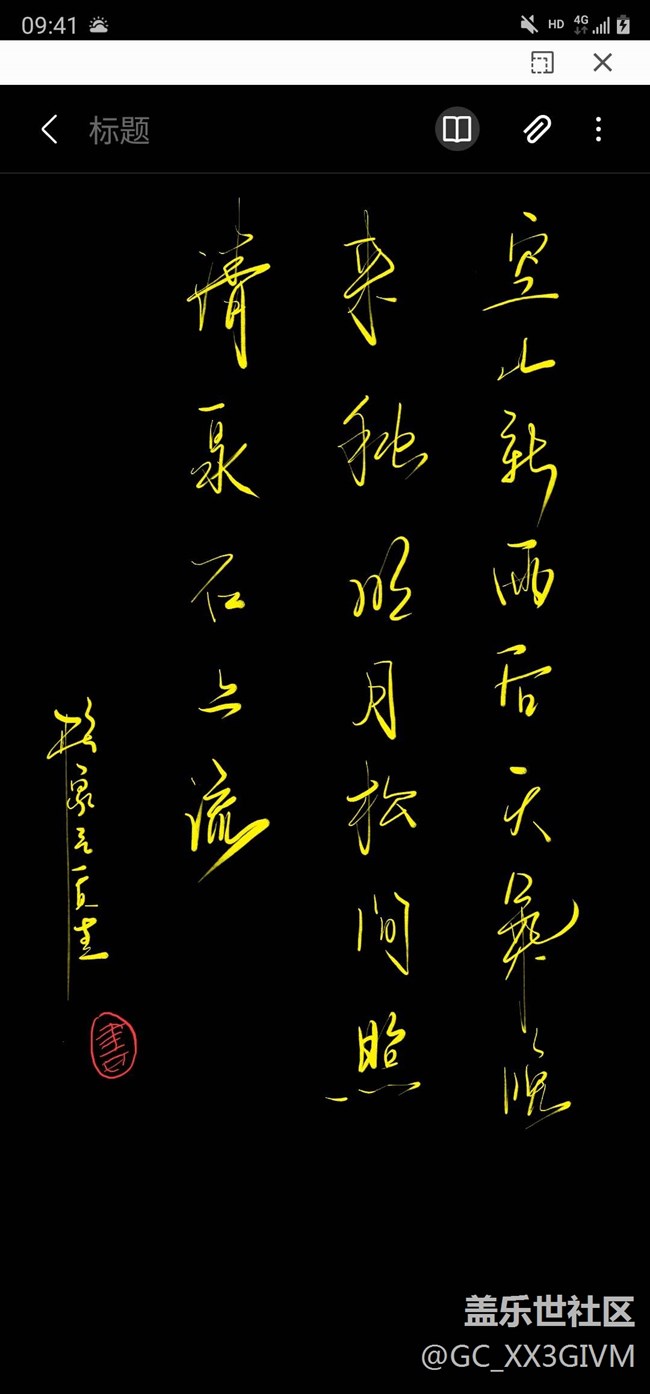 09:41 HD 4G
标题
空山新雨后天氣晚
来秋明月松间照
清泉石上流
盖乐世社区
@GC_XX3GIVM